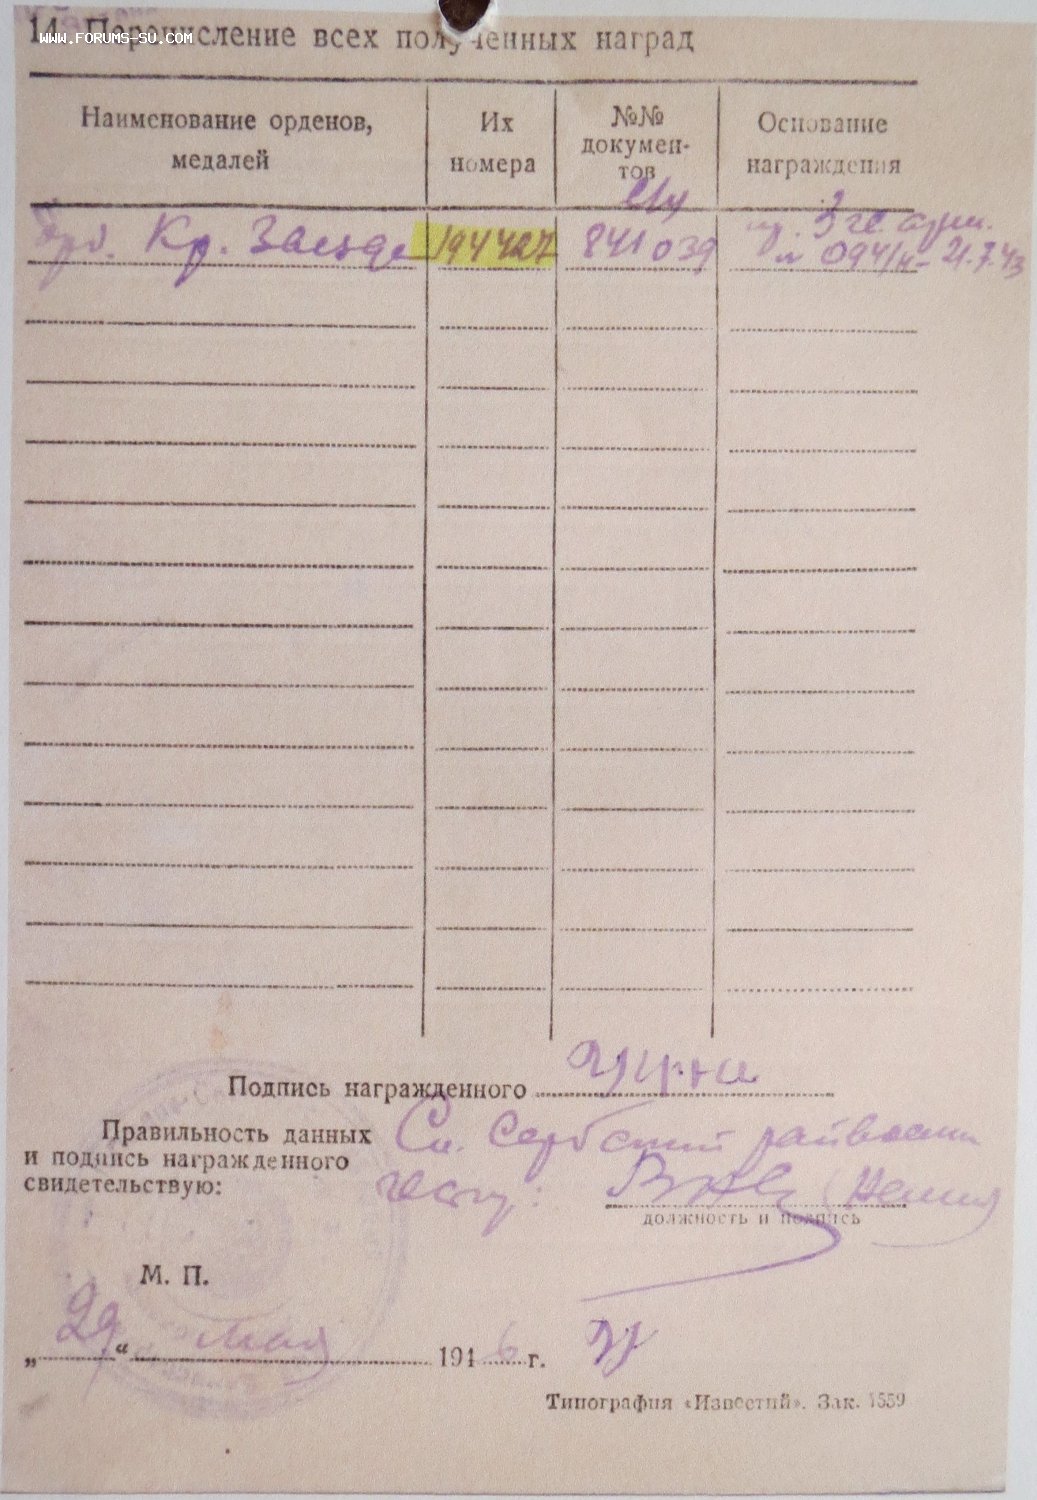 WWW.FORUMS-SU.COM
14. Перечисление всех полученных наград
Наименование орденов, медалей
Их номера
№№ документов
Основание награждения
Орд. Кр. Звезда 194427 841039 пр. 3 гв. арм.
№ 094/н - 21.7.43
Подпись награжденного
Правильность данных
и подпись награжденного
свидетельствую:
должность и подпись
М. П.
„29“ мая 1946 г.
Типография «Известий». Зак. 1559